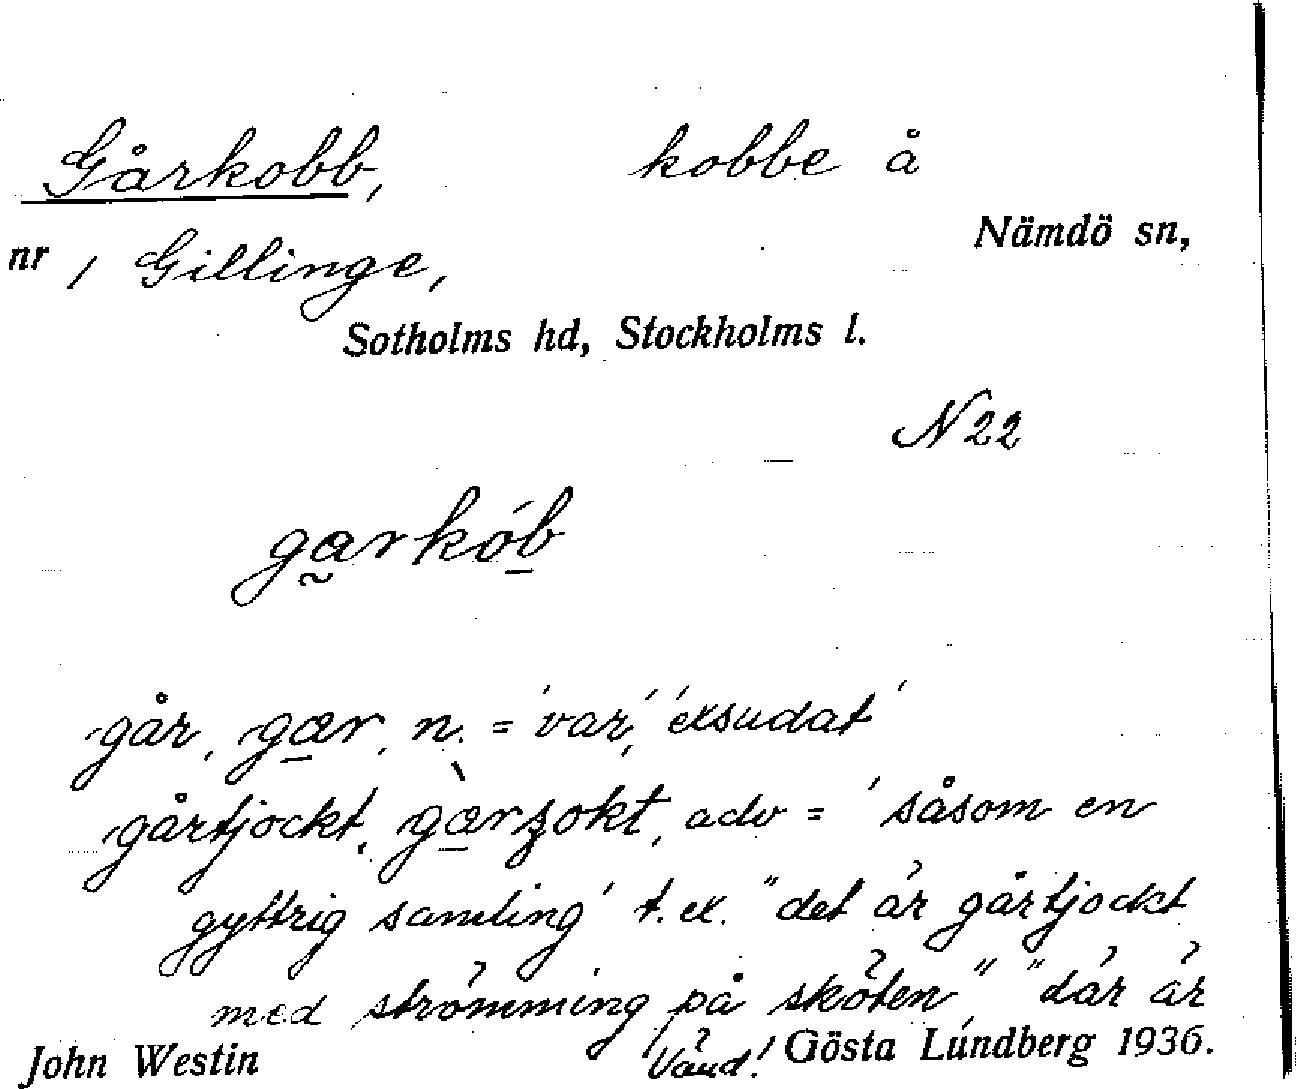 Gårkobb, kobbe å
Nämdö sn,
nr / Gillinge,
Sotholms hd, Stockholms l.
N 22
garkób
går, gær, n. = 'var', 'exsudat'
gårtjockt, gærʒokt, adv = 'såsom en
gyttrig samling' t.ex. "det är gårtjockt
med strömming på sköten", "där är
Vänd!
John Westin Gösta Lundberg 1936.